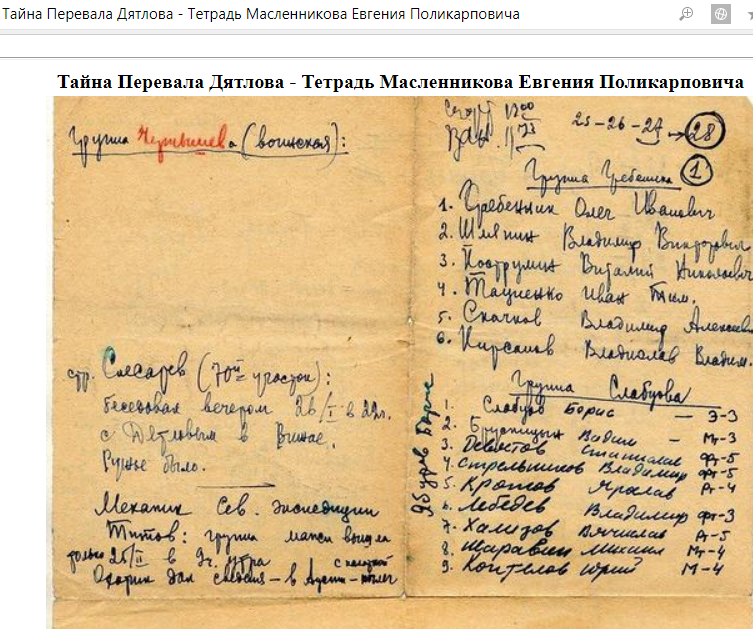 Тайна Перевала Дятлова - Тетрадь Масленникова Евгения Поликарповича
Тайна Перевала Дятлова - Тетрадь Масленникова Евгения Поликарповича
Группа Чернышева (воинская):
стр. Слесарев (70й участок):
беседовал вечером 26/I в 22ч.
с Дятловым в Вижае.
Ружье было.
Механик Сев. экспедиции
Титов: группа манси вышла
только 25/II в 9ч. утра
Охотник дал
25-26-27→28
1
Группа Гребенника
1. Гребенник Олег Иванович
2. Шляпин Владимир Викторович
3. Пострумин Виталий Николаевич
4. Тащиенко Иван
5. Скачков Владимир Алексеев
6. Кирсанов Владислав Владим.
Группа Слабцова
1. Слабцов Борис — Э-3
2. Брусницын Вадим — Мт-3
3. Девятов Станислав Фт-5
4. Стрельников Владимир Фт-5
5. Кротов Ярослав Рт-4
6. Лебедев Владимир Фт-3
7. Хализов Вячеслав Рт-5
8. Шаравин Михаил Мт-4
9. Коптелов Юрий М-4
Яблудев Борис